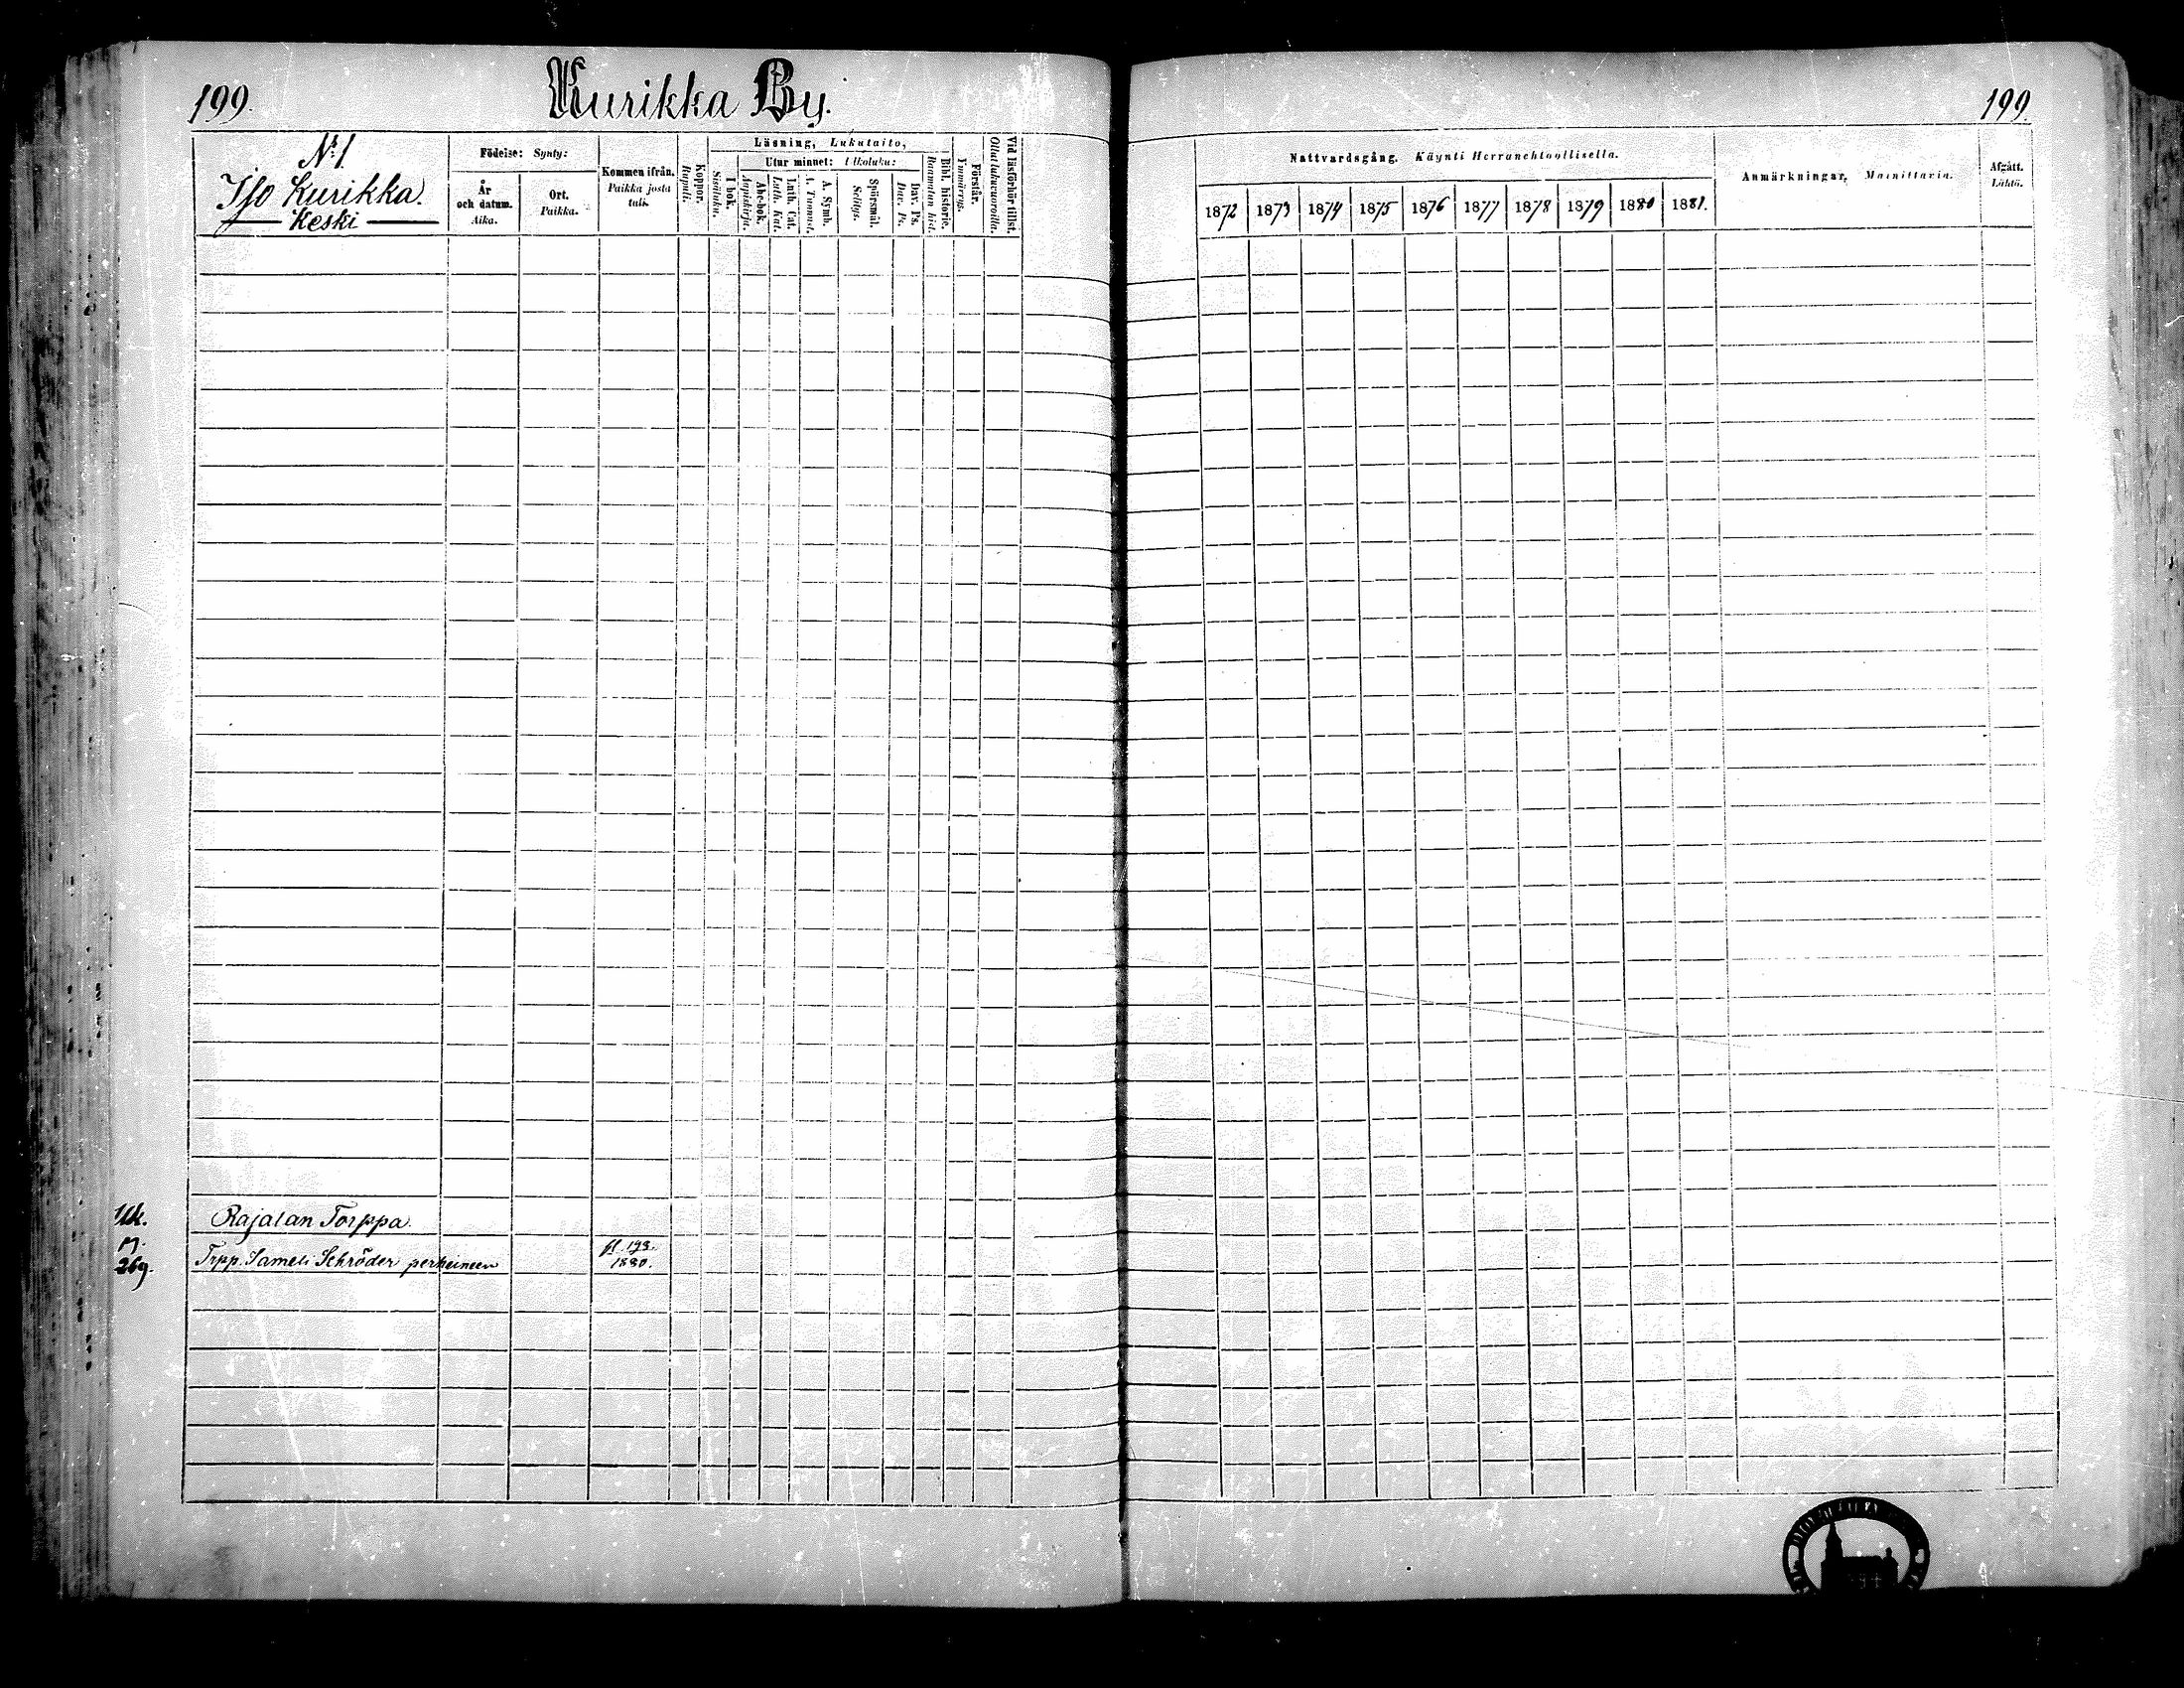 199.
Kurikka By.
N:1
Iso Kurikka.
Keski
Födelse: Synty:
År och datum. Aika.
Ort. Paikka.
Kommen ifrån. Paikka josta tuli.
Koppor. Rupuli.
Läsning, Lukutaito,
I bok. Sisäluku.
Utur minnet: Ulkoluku:
Abc-bok. Aapiskirja.
Luth. Cat. Luth. Kat.
A. Symb. A. Tunnust.
Spörsmål. Selitys.
Dav. Ps. Dav. Ps.
Bibl. historie. Raamatun hist.
Förstår. Ymmärrys.
Vid läsförhör tillst. Ollut lukuvuoroilla.
Ulk.
Rajalan Torppa.
M.
269.
Trpp. Sameli Schröder perheineen
fl. 193.
1880.
199.
Nattvardsgång. Käynti Herranehtoollisella.
1872 1873 1874 1875 1876 1877 1878 1879 1880 1881.
Anmärkningar, Mainittavia.
Afgått. Lähtö.